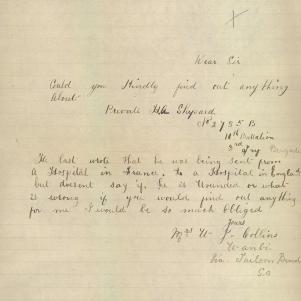 Dear Sir
Could you Kindly find out anything
About
Private HA Shepard
No 2755 B
10th Battalion
3rd Inf Brigade
He last wrote that he was being sent from
a Hospital in France, to a Hospital in England
but doesent say if he is Wounded or what
is wrong if you would find out anything
for me I would be so much obliged
Yours
Mrs W J Collins
Wanbi
Via. Tailem Bend
S.A